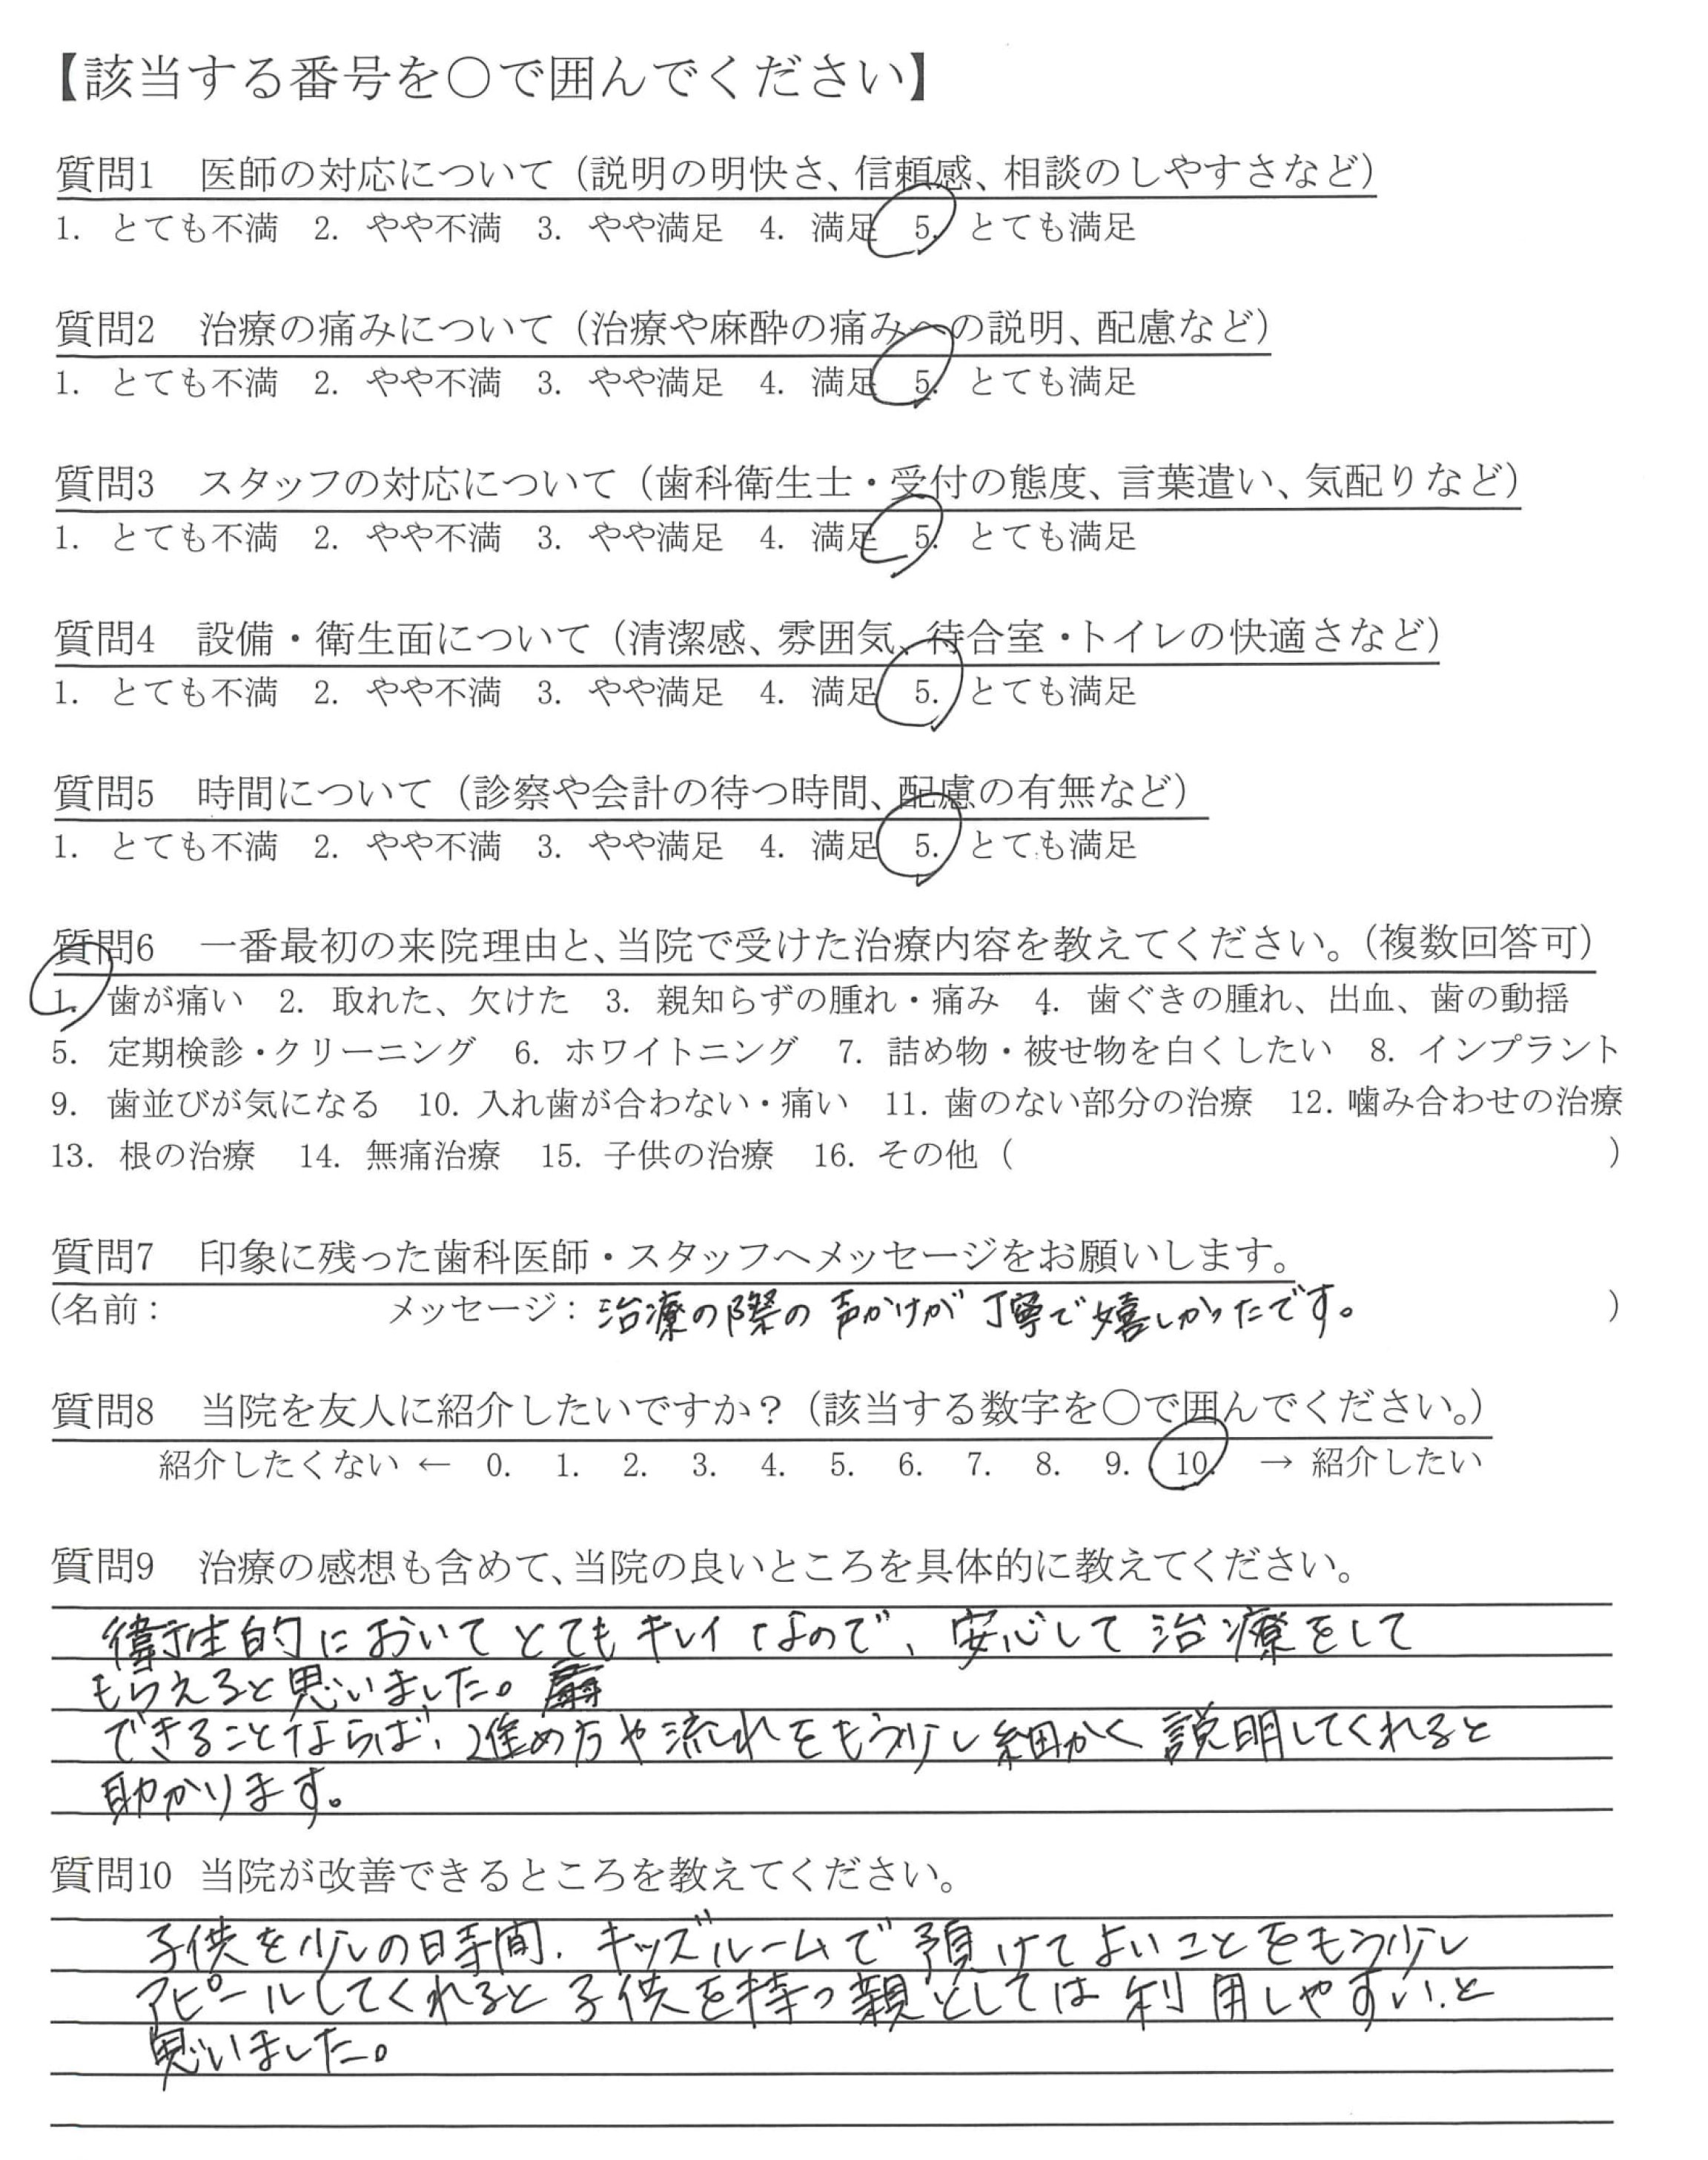 【該当する番号を○で囲んでください】
質問1　医師の対応について（説明の明快さ、信頼感、相談のしやすさなど）
1. とても不満　2. やや不満　3. やや満足　4. 満足　5. とても満足
質問2　治療の痛みについて（治療や麻酔の痛みへの説明、配慮など）
1. とても不満　2. やや不満　3. やや満足　4. 満足　5. とても満足
質問3　スタッフの対応について（歯科衛生士・受付の態度、言葉遣い、気配りなど）
1. とても不満　2. やや不満　3. やや満足　4. 満足　5. とても満足
質問4　設備・衛生面について（清潔感、雰囲気、待合室・トイレの快適さなど）
1. とても不満　2. やや不満　3. やや満足　4. 満足　5. とても満足
質問5　時間について（診察や会計の待つ時間、配慮の有無など）
1. とても不満　2. やや不満　3. やや満足　4. 満足　5. とても満足
質問6　一番最初の来院理由と、当院で受けた治療内容を教えてください。（複数回答可）
1. 歯が痛い　2. 取れた、欠けた　3. 親知らずの腫れ・痛み　4. 歯ぐきの腫れ、出血、歯の動揺
5. 定期検診・クリーニング　6. ホワイトニング　7. 詰め物・被せ物を白くしたい　8. インプラント
9. 歯並びが気になる　10. 入れ歯が合わない・痛い　11. 歯のない部分の治療　12. 噛み合わせの治療
13. 根の治療　14. 無痛治療　15. 子供の治療　16. その他（　　　）
質問7　印象に残った歯科医師・スタッフへメッセージをお願いします。
(名前：　　　メッセージ：治療の際の声かけが丁寧で嬉しかったです。　　　)
質問8　当院を友人に紹介したいですか？（該当する数字を○で囲んでください。）
紹介したくない ← 0. 1. 2. 3. 4. 5. 6. 7. 8. 9. 10. → 紹介したい
質問9　治療の感想も含めて、当院の良いところを具体的に教えてください。
衛生的においてとてもキレイなので、安心して治療をして
もらえると思いました。
できることならば、進め方や流れをもう少し細かく説明してくれると
助かります。
質問10 当院が改善できるところを教えてください。
子供を少しの時間、キッズルームで預けてよいことをもう少し
アピールしてくれると子供を持つ親としては利用しやすいと
思いました。